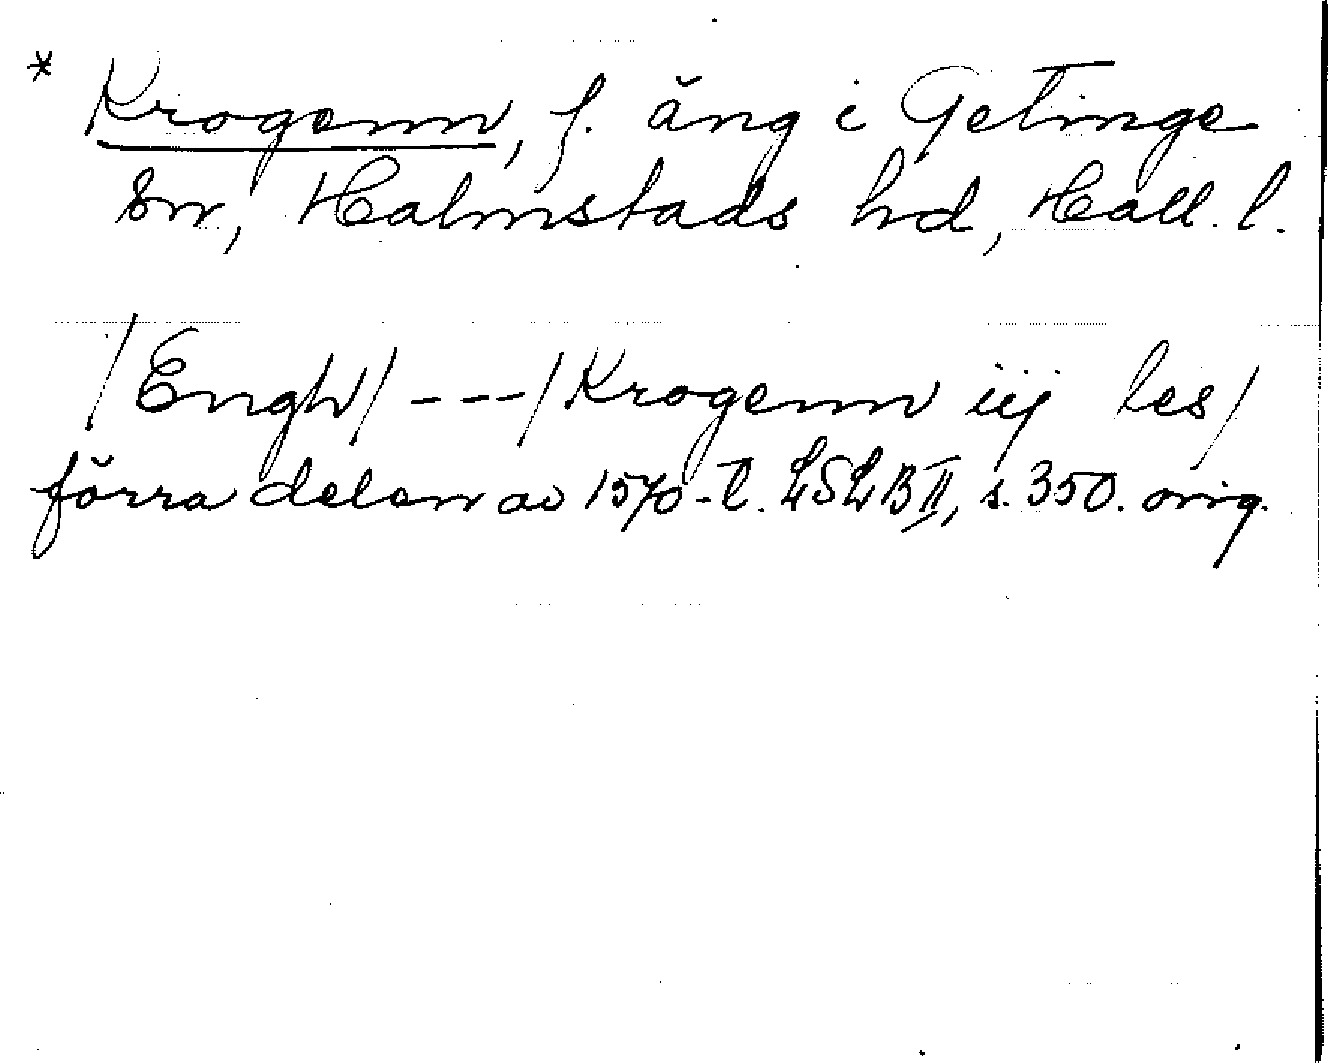 * Krogenn, f. äng i Getinge
sn, Halmstads hd, Hall. l.
/Engh/ - - - /Krogenn iij les/
förra delen av 1570-t. LSLB II, s. 350. orig.